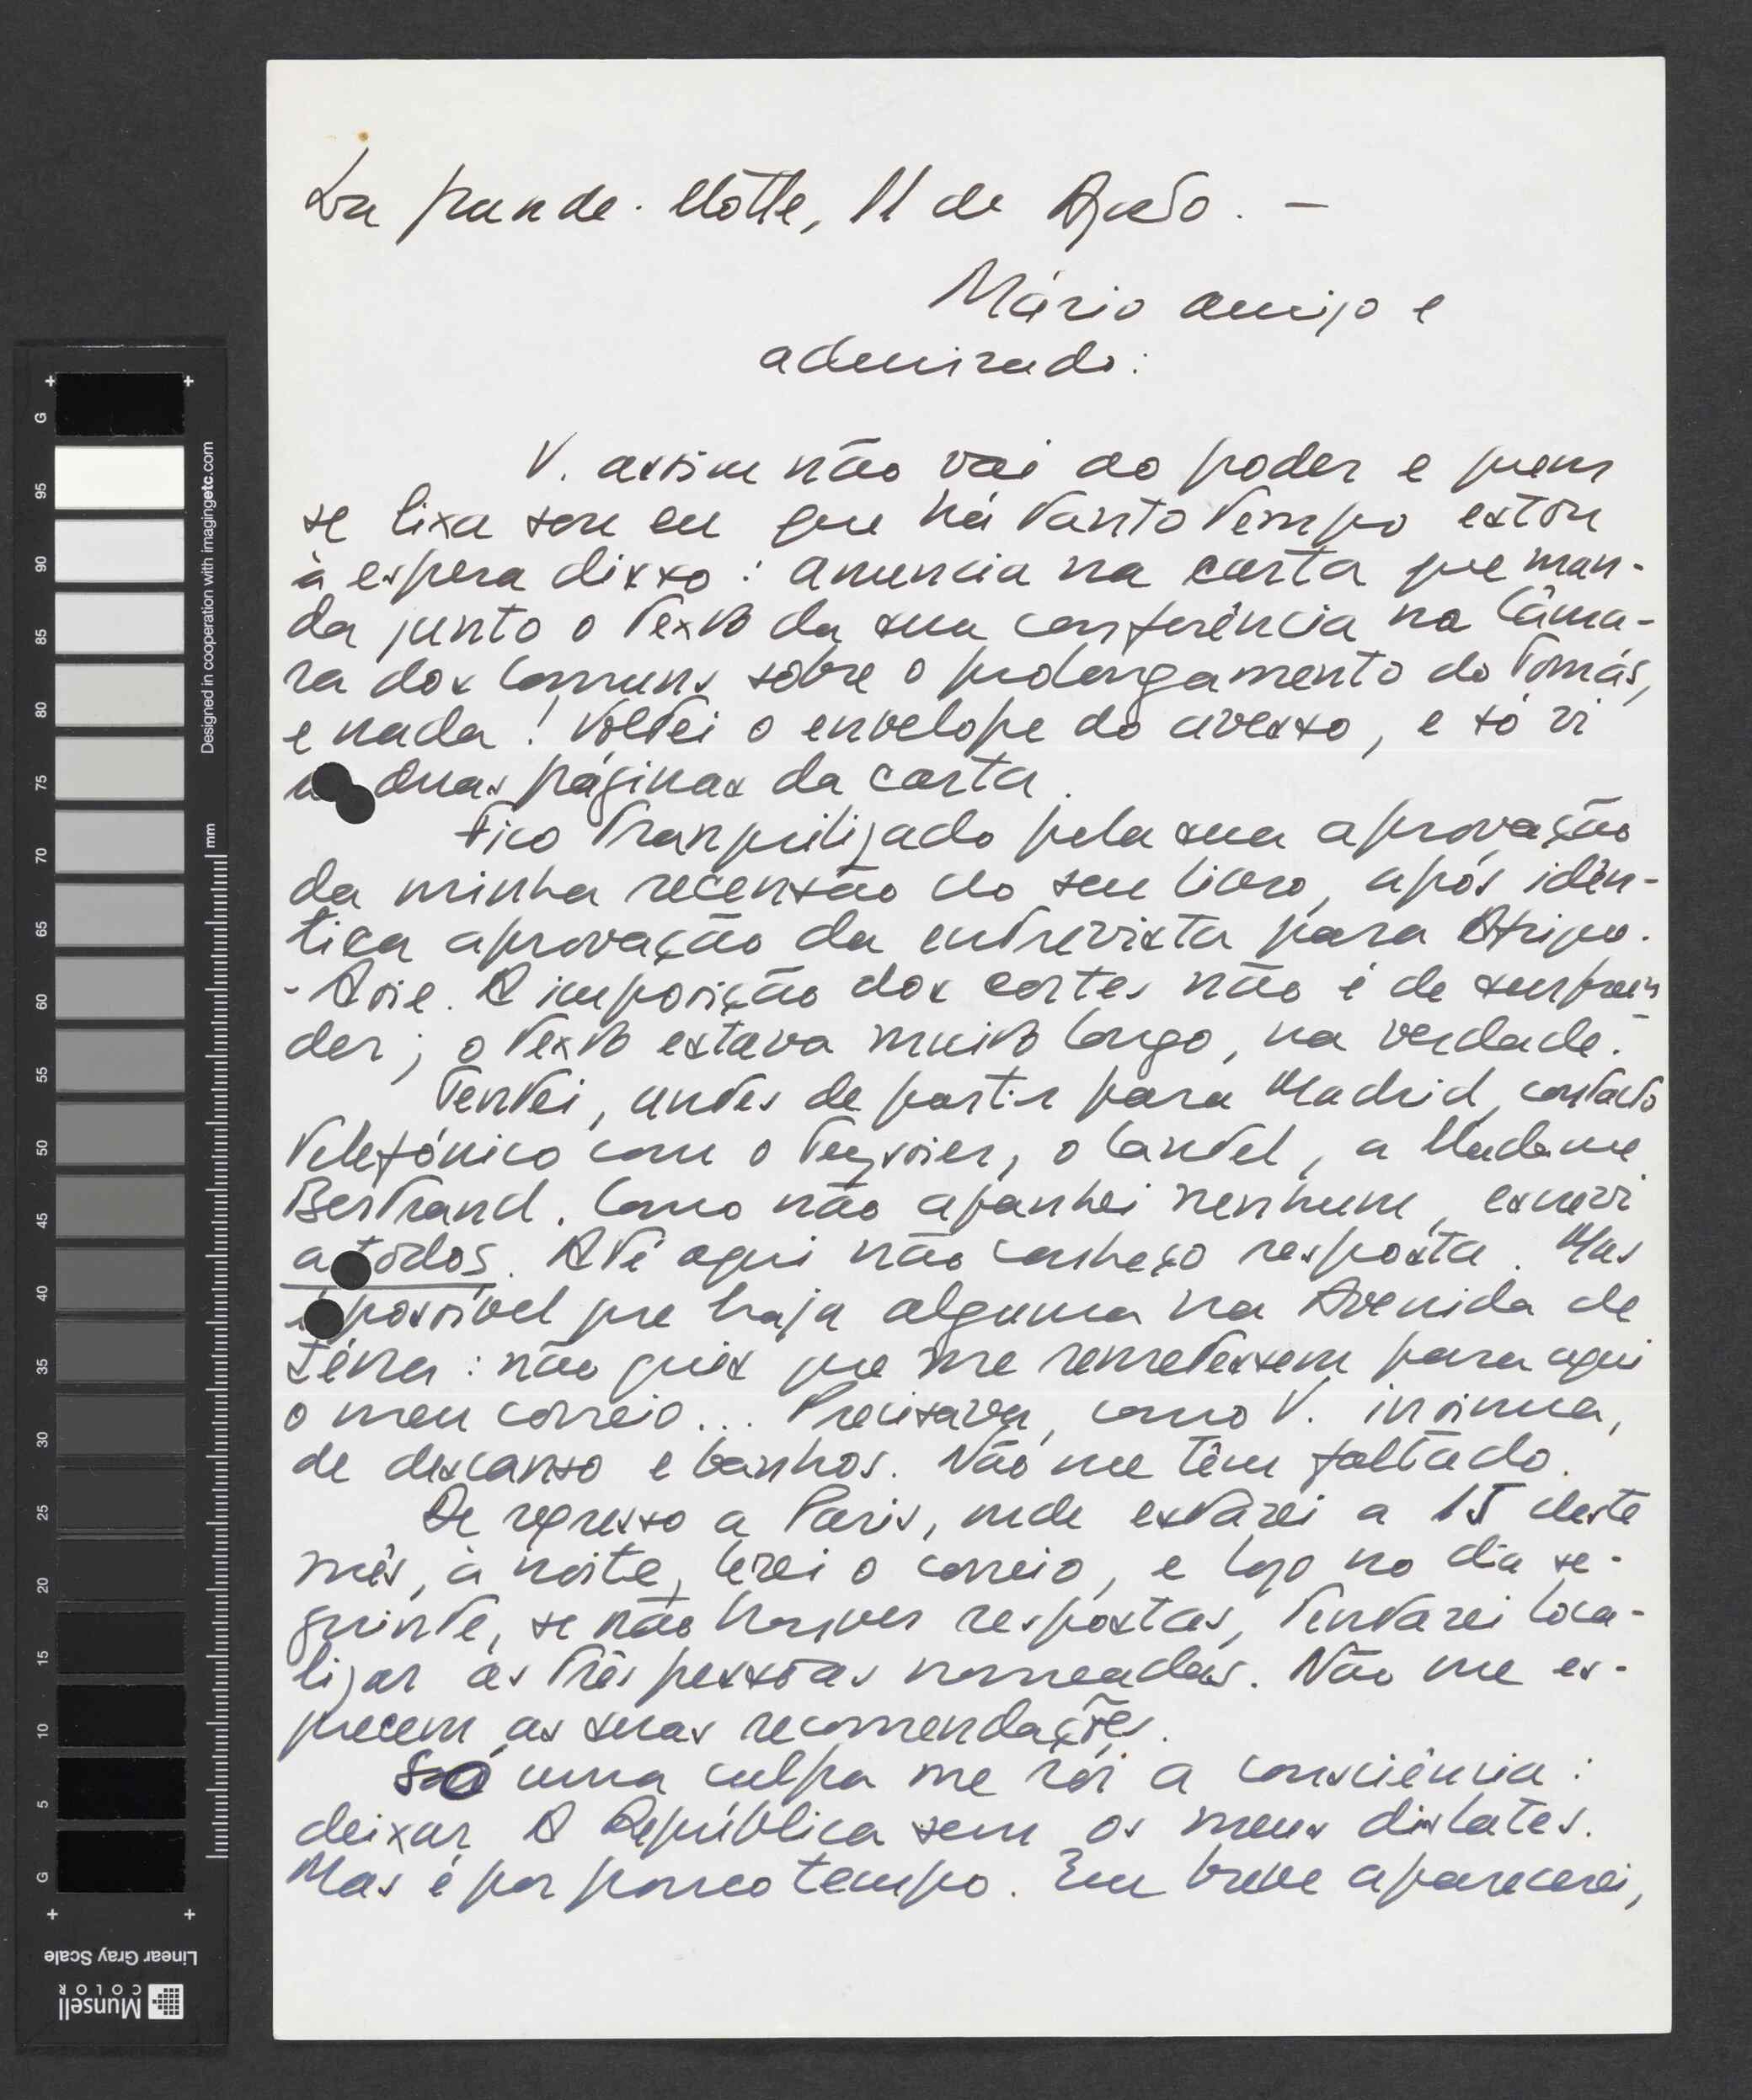 La grande-Motte, 11 de Agosto. -
Mário amigo e
admirado:
V. assim não vai ao poder e quem
se lixa sou eu que há tanto tempo estou
à espera disso: anuncia na carta que man-
da junto o texto da sua conferência na Câma-
ra dos Comuns sobre o prolongamento do Tomás,
e nada! Voltei o envelope do avesso, e só vi
duas páginas da carta.
Fico tranquilizado pela sua aprovação
da minha recensão do seu livro, após idên-
tica aprovação da entrevista para Afrique-
-Asie. A imposição dos cortes não é de surpreen
der; o texto estava muito longo, na verdade.
Tentei, antes de partir para Madrid, contacto
telefónico com o Teyssier, o Cantel, a Madame
Bertrand. Como não apanhei nenhum, escrevi
a todos. Até aqui não conheço resposta. Mas
é possível que haja alguma na Avenida de
Iéna: não quis que me remetessem para aqui
o meu correio... Precisava, como V. insinua,
de descanso e banhos. Não me têm faltado.
De regresso a Paris, onde estarei a 15 deste
mês, à noite, lerei o correio, e logo no dia se-
guinte, se não houver respostas, tentarei loca-
lizar as três pessoas nomeadas. Não me es-
quecem as suas recomendações.
Só uma culpa me rói a consciência:
deixar A República sem os meus dislates.
Mas é por pouco tempo. Em breve aparecerei,
Designed in cooperation with imagingetc.com
mm
G 95 90 85 80 75 70 65 60 55 50 45 40 35 30 25 20 15 10 5 G
Linear Gray Scale
Munsell
COLOR